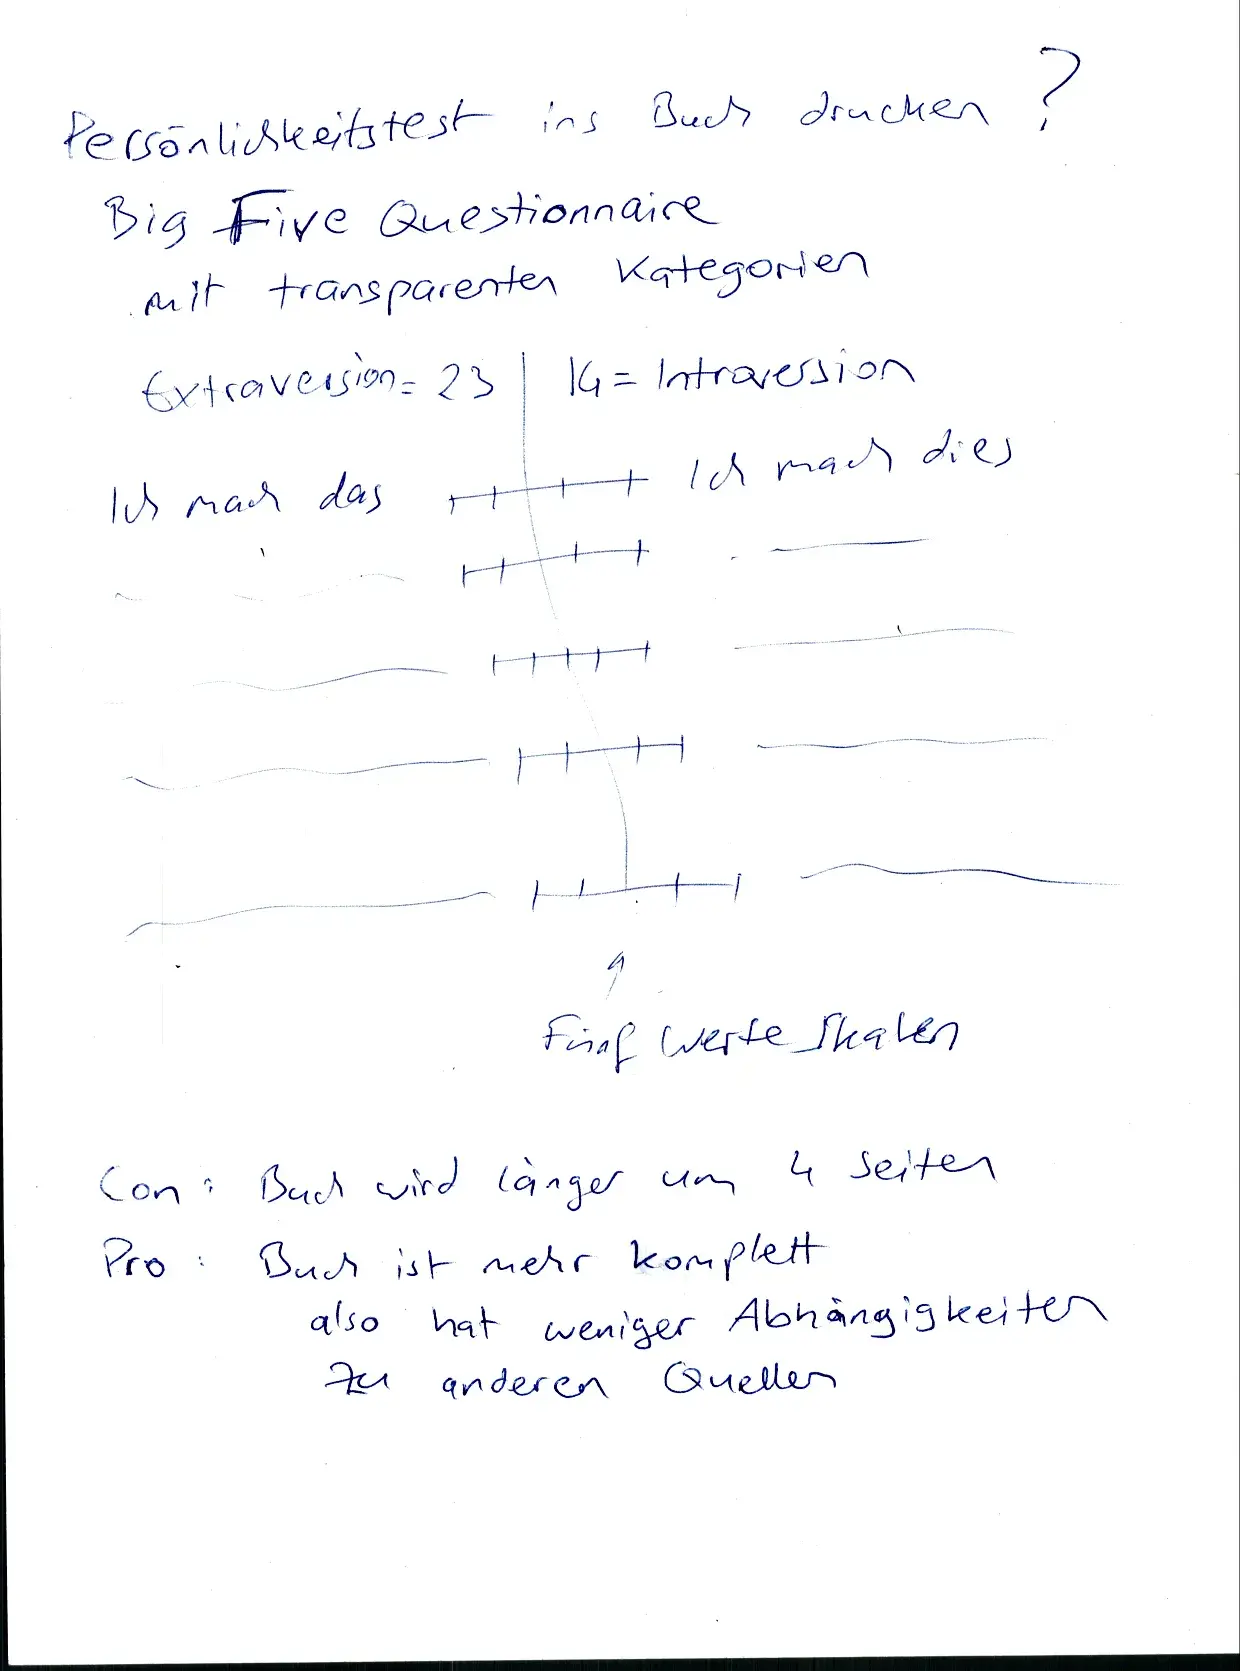 Persönlichkeitstest ins Buch drucken ?
Big Five Questionnaire
mit transparenten Kategorien
Extraversion = 23 | 14 = Introversion
Ich mach das Ich mach dies
Fünf Werte Skalen
Con : Buch wird länger um 4 Seiten
Pro : Buch ist mehr komplett
also hat weniger Abhängigkeiten
zu anderen Quellen